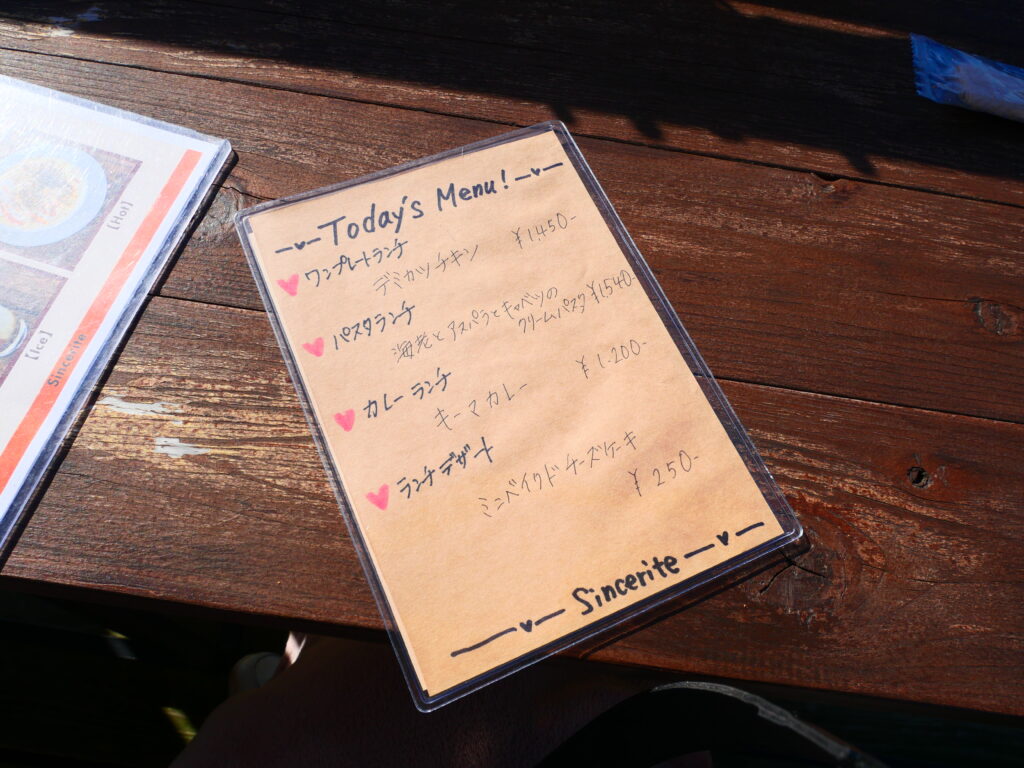 Today's Menu!
ワンプレートランチ
デミカツチキン ¥1,450-
パスタランチ
海老とアスパラとキャベツの ¥1,540-
クリームパスタ
カレーランチ
キーマカレー ¥1.200-
ランチデザート
ミニベイクドチーズケーキ
¥250-
Sincerite
[Hot]
[Ice]
Sincerite